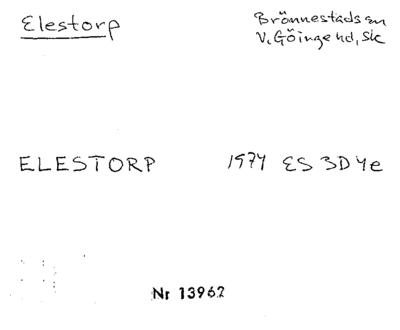 Elestorp
Brönnestads sn
V. Göinge hd, Sk
ELESTORP 1974 ES 3D4e
Nr 13962